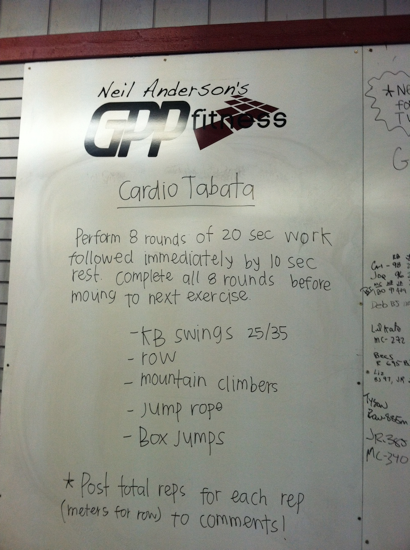 Neil Anderson's
GPP fitness
Cardio Tabata
Perform 8 rounds of 20 sec work
followed immediately by 10 sec
rest. Complete all 8 rounds before
moving to next exercise
- KB swings 25/35
- row
- mountain climbers
- Jump rope
- Box Jumps
* Post total reps for each rep
(meters for row) to comments!
Tyson
Row-885m
JR-385
MC-340